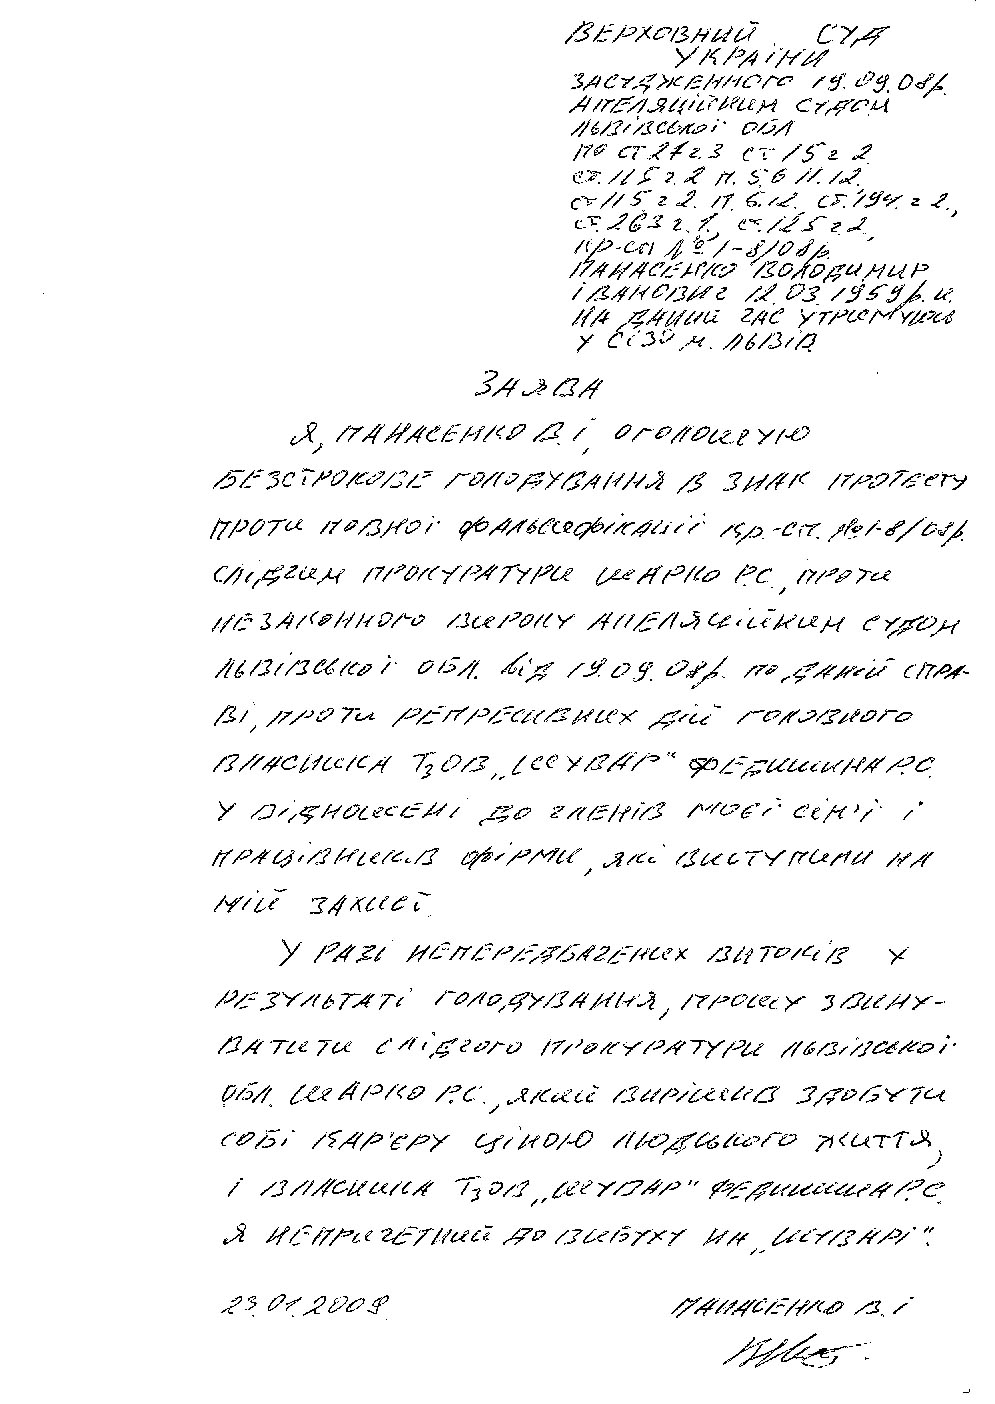 ВЕРХОВНИЙ СУД
УКРАЇНИ
ЗАСУДЖЕННОГО 19.09.08р.
АПЕЛЯЦІЙНИМ СУДОМ
ЛЬВІВСЬКОЇ ОБЛ
ПО СТ 27 ч.3 СТ 15 ч 2
СТ. 115 ч. 2 П. 5.6 11.12.
СТ 115 ч 2. П. 6.12. СТ. 194. ч 2.,
СТ. 263 ч. 1., СТ. 125 ч 2,
КР-СП № 1-8/08р.
ПАНАСЕНКО ВОЛОДИМИР
ІВАНОВИЧ 12.03.1959р.н.
НА ДАНИЙ ЧАС УТРИМУЮСЬ
У СІЗО м. ЛЬВІВ
ЗАЯВА
Я, ПАНАСЕНКО В.І, ОГОЛОШУЮ
БЕЗСТРОКОВЕ ГОЛОДУВАННЯ В ЗНАК ПРОТЕСТУ
ПРОТИ ПОВНОЇ ФАЛЬСИФІКАЦІЇ Кр.-СП. №1-8/08р.
СЛІДЧИМ ПРОКУРАТУРИ ШАРКО Р.С., ПРОТИ
НЕЗАКОННОГО ВИРОКУ АПЕЛЯЦІЙНИМ СУДОМ
ЛЬВІВСЬКОЇ ОБЛ. ВІД 19.09.08р. ПО ДАНІЙ СПРА-
ВІ, ПРОТИ РЕПРЕСИВНИХ ДІЙ ГОЛОВНОГО
ВЛАСНИКА ТзОВ „ШУВАР" ФЕДИШИНА Р.С.
У ВІДНОШЕНІ ДО ЧЛЕНІВ МОЄЇ СІМ'Ї І
ПРАЦІВНИКІВ ФІРМИ, ЯКІ ВИСТУПИЛИ НА
МІЙ ЗАХИСТ.
У РАЗІ НЕПЕРЕДБАЧЕНИХ ВИТОКІВ У
РЕЗУЛЬТАТІ ГОЛОДУВАННЯ, ПРОШУ ЗВИНУ-
ВАТИТИ СЛІДЧОГО ПРОКУРАТУРИ ЛЬВІВСЬКОЇ
ОБЛ. ШАРКО Р.С., ЯКИЙ ВИРІШИВ ЗДОБУТИ
СОБІ КАР'ЄРУ ЦІНОЮ ЛЮДСЬКОГО ЖИТТЯ,
І ВЛАСНИКА ТзОВ „ШУВАР" ФЕДИШИНА Р.С.
Я НЕПРИЧЕТНИЙ ДО ВИБУХУ НА „ШУВАРІ".
23.01.2009 ПАНАСЕНКО В.І